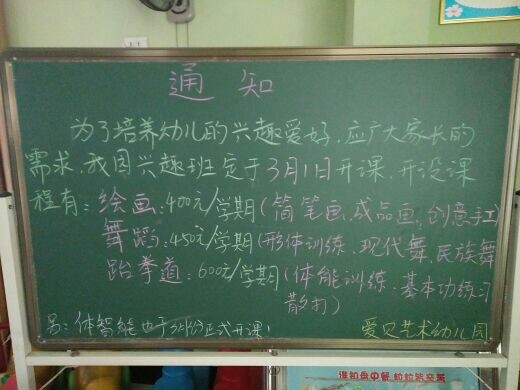 通知
为了培养幼儿的兴趣爱好,应广大家长的
需求,我园兴趣班定于3月11日开课,开设课
程有:绘画:400元/学期(简笔画,成品画,创意手工)
舞蹈:450元/学期(形体训练、现代舞、民族舞
跆拳道:600元/学期(体能训练、基本功练习
散打)
另:体智能也于3月份正式开课!
爱贝艺术幼儿园
谁知盘中餐 粒粒皆辛苦